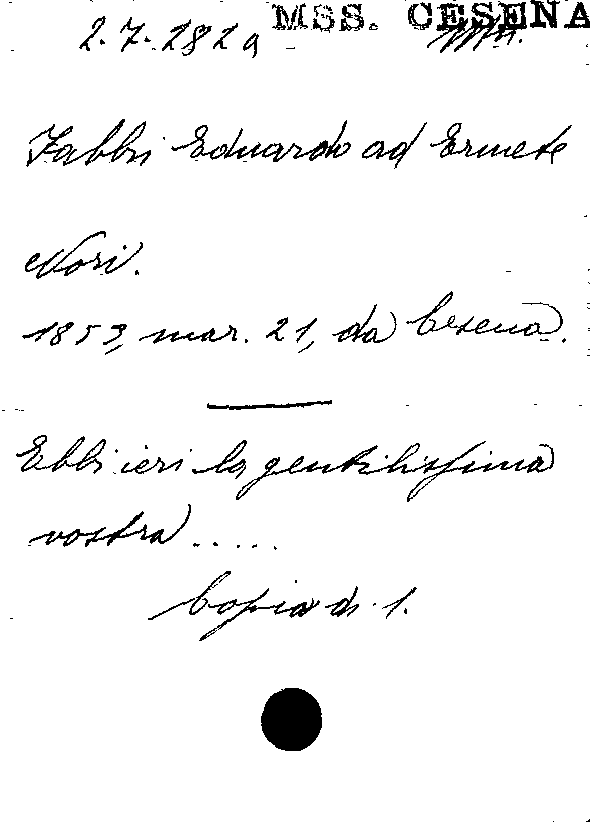 MSS. CESENA
2.7.182a
Fabbri Eduardo ad Ermete
Nori.
1853, mar. 21, da Cesena.
Ebbi ieri la gentilissima
vostra .....
Copia di 1.